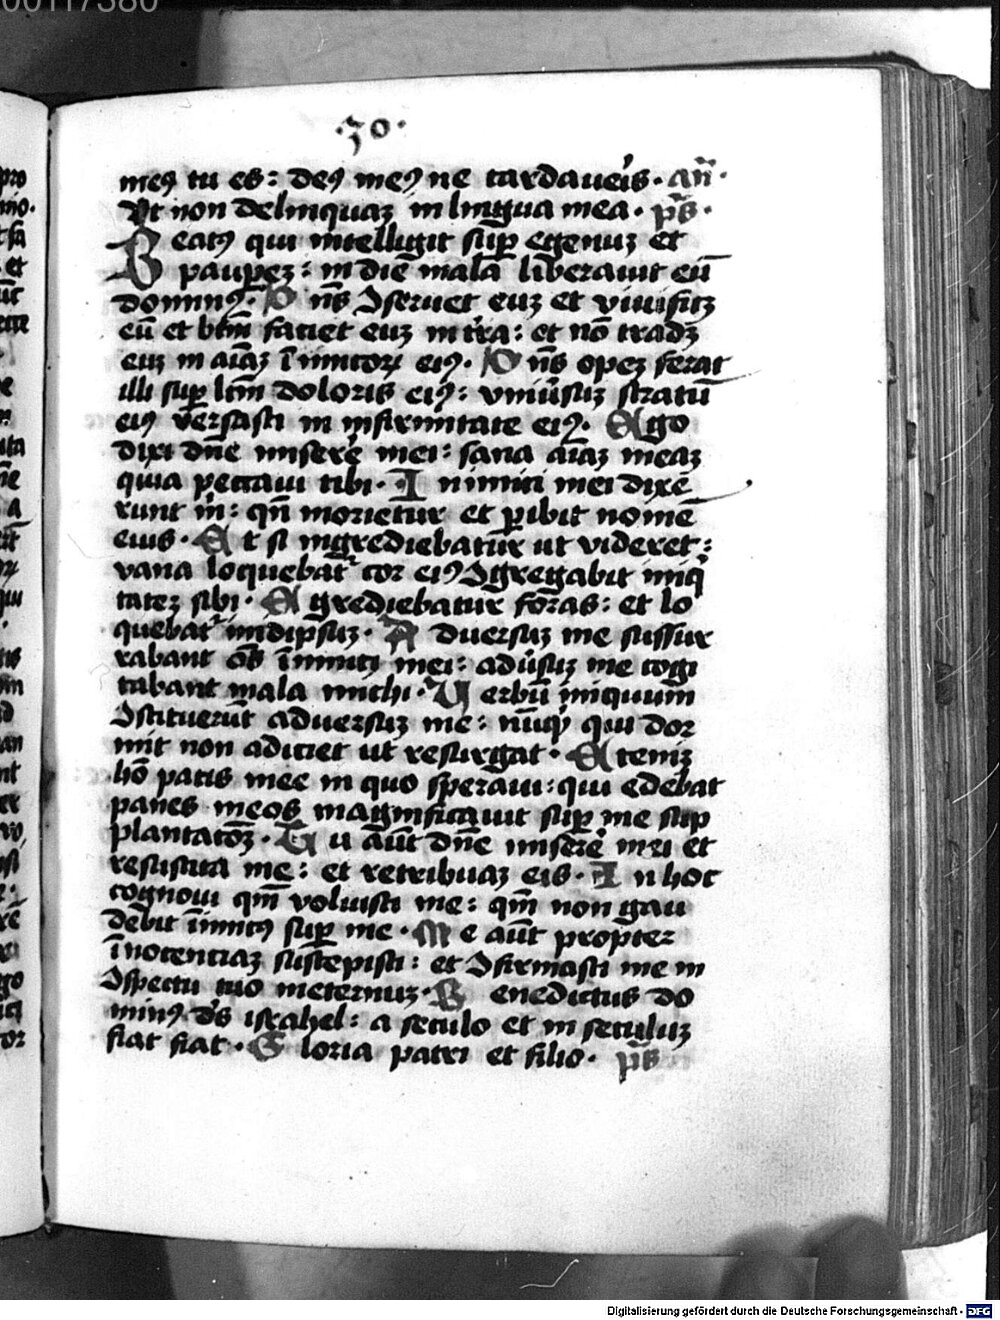 00117380
·30·
meꝰ tu es : deꝰ meꝰ ne tardaveis · añ ·
Ut non delinquaꝫ in lingua mea · ps ·
Beatꝰ qui intelligit suꝑ egenuꝫ et
pauperez : in die mala liberavit eū
dominꝰ · D ns ꝯservet euꝫ et vivificꝫ
eū et btm̄ faciet euꝫ in tr̄a : et nō tradꝫ
euꝫ in aīaꝫ īnimicoꝝ eiꝰ · D ns opeꝫ ferat
illi suꝑ lcm̄ doloris eiꝰ : univ̓suꝫ stratū
eiꝰ versasti in infirmitate eiꝰ · Ego
dixi dn̄e misere mei : sana aīaꝫ meaꝫ
quia peccavi tibi · I nimici mei dixe
runt m̄ : qn̄ morietur et ꝑibit nomē
eius · E t si ingrediebatur ut videret :
vana loquebat᷑ cor eiꝰ ꝯgregabit iniq̓
tateꝫ sibi · E grediebatur foras : et lo
quebat᷑ inidipsuꝫ · A dversuꝫ me sussur
rabant oēs īnimici mei : adv̓suꝫ me cogi
tabant mala michi · V erbū iniquum
ꝯstituerūt adversuꝫ me : nūꝗ qui dor
mit non adiciet ut resurgat · E teniꝫ
hō pacis mee in quo speravi : qui edebat
panes meos magnificavit suꝑ me sup
plantatōꝫ · T u aūt dn̄e misere mei et
resuscita me : et retribuaꝫ eis · I n hoc
cognovi qm̄ voluisti me : qm̄ non gau
debit īnimicꝰ suꝑ me · M e aūt propter
īnocenciaꝫ suscepisti : et ꝯfirmasti me in
ꝯspectu tuo ineternuꝫ · B enedictus do
minꝰ ds̄ israhel : a seculo et in seculuꝫ
fiat fiat · G loria patri et filio · ps
Digitalisierung gefördert durch die Deutsche Forschungsgemeinschaft - DFG